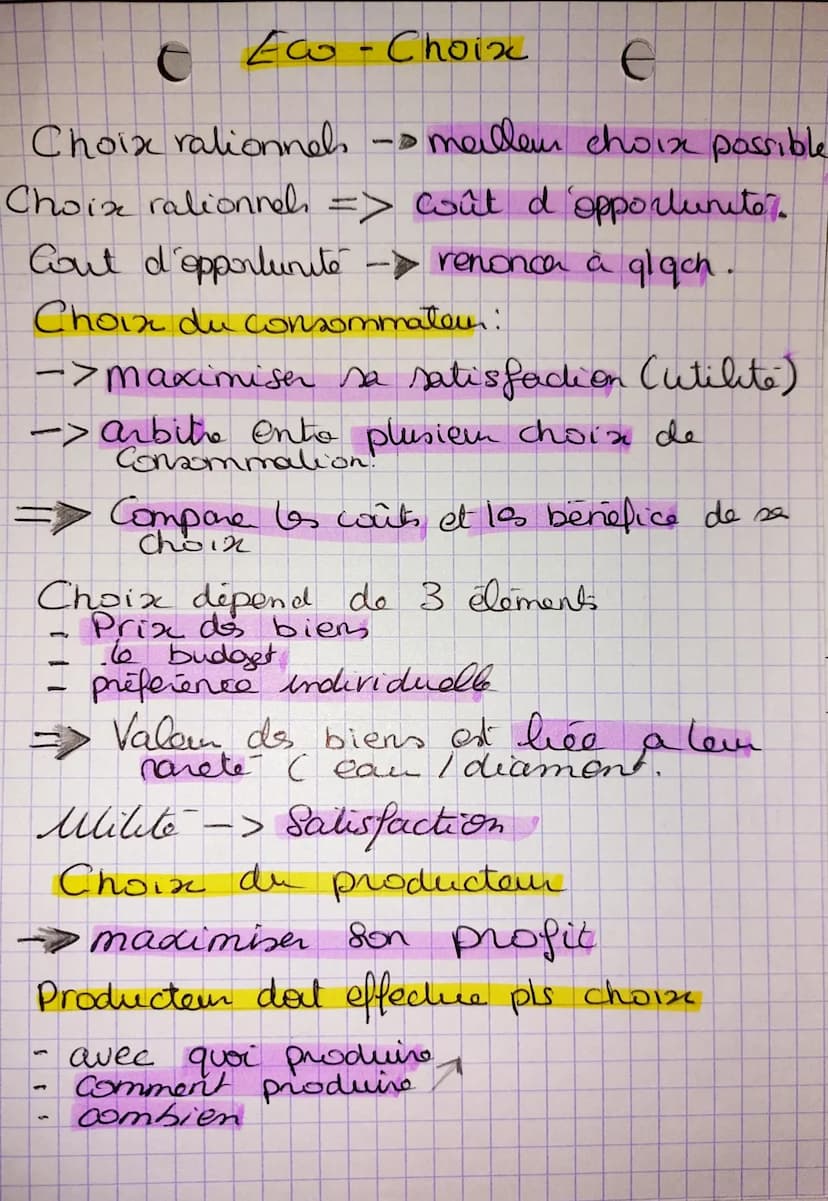 Eco - Choix
Choix rationnels -> meilleur choix possible
Choix rationnels => coût d'opportunité.
Cout d'opportunité -> renoncer à qlqch.
Choix du consommateur :
-> maximiser sa satisfaction (utilité)
-> arbitre entre plusieur choix de
consommation.
=> Compare les coûts et les bénéfice de se
choix
Choix dépend de 3 éléments
- Prix des biens
- le budget
- préférence individuelle
=> Valeur des biens est liée a leur
rareté ( eau / diamant.
Utilité -> Satisfaction
Choix du producteur
-> maximiser son profit
Producteur doit effectue pls choix
- avec quoi produire
- comment produire
- combien